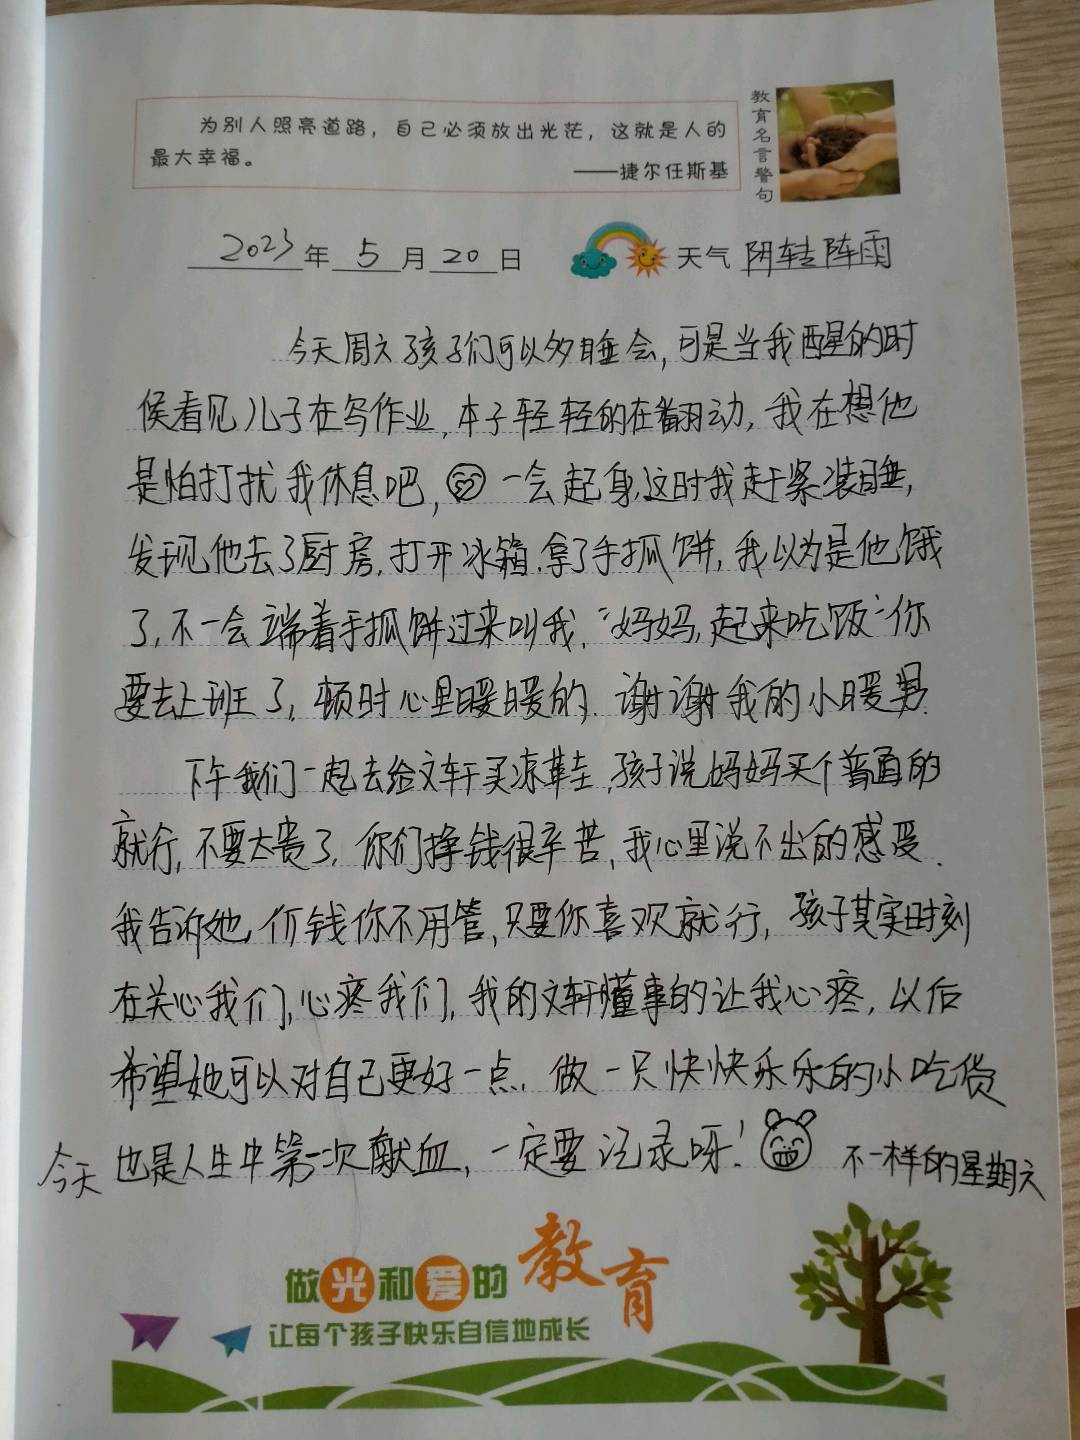 为别人照亮道路，自己必须放出光芒，这就是人的
最大幸福。
——捷尔任斯基
教育名言警句
2023年5月20日 天气 阴转阵雨
今天周六孩子们可以多睡会,可是当我醒的时
候看见儿子在写作业,本子轻轻的在翻动,我在想他
是怕打扰我休息吧,一会起身,这时我赶紧装睡,
发现他去了厨房,打开冰箱.拿了手抓饼,我以为是他饿
了,不一会端着手抓饼过来叫我,“妈妈,起来吃饭”你
要去上班了,顿时心里暖暖的.谢谢我的小暖男.
下午我们一起去给文轩买凉鞋,孩子说妈妈买个普通的
就行,不要太贵了,你们挣钱很辛苦,我心里说不出的感受.
我告诉她,价钱你不用管,只要你喜欢就行,孩子其实时刻
在关心我们,心疼我们,我的文轩懂事的让我心疼,以后
希望她可以对自己更好一点.做一只快快乐乐的小吃货
今天也是人生中第一次献血,一定要记录呀!不一样的星期六
做光和爱的教育
让每个孩子快乐自信地成长